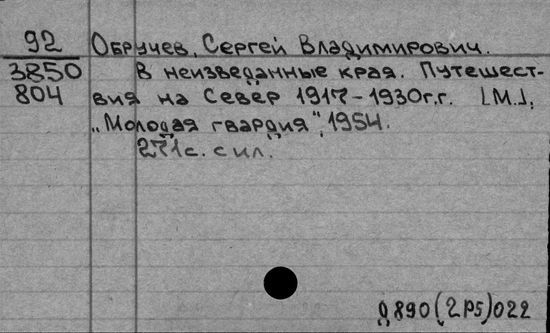 92 Обручев, Сергей Владимирович.
3850 В неизведанные края. Путешест-
804 вия на Север 1917-1930г.г. [М.],
„Молодая гвардия", 1954.
271с. с ил.
0890(2Р5)022